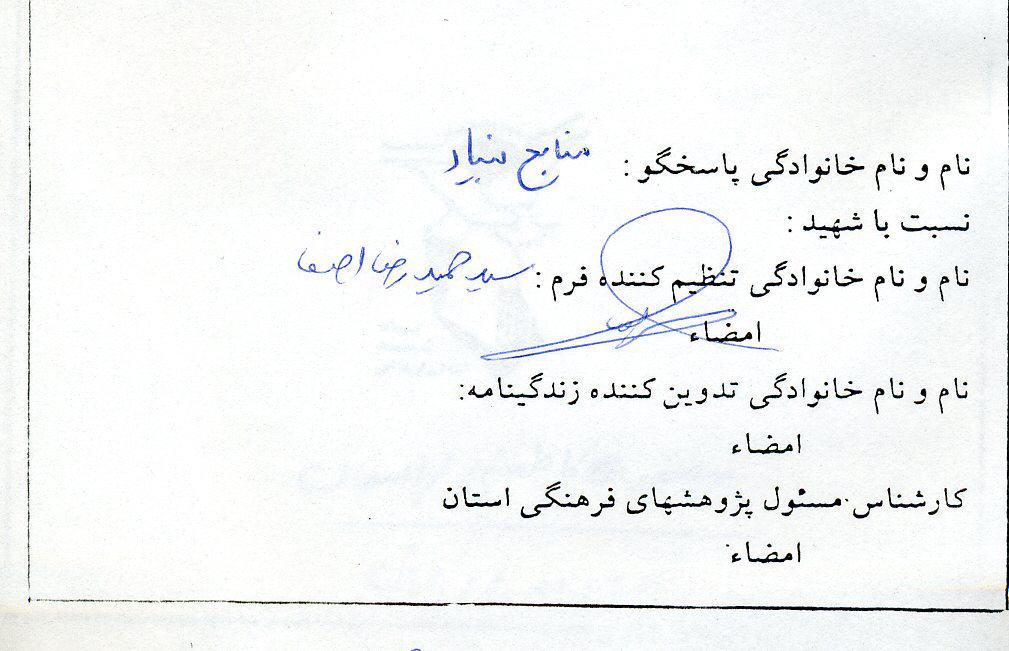 نام و نام خانوادگی پاسخگو : منابع بنیاد
نسبت با شهید :
نام و نام خانوادگی تنظیم کننده فرم : سید حمید رضا
امضاء
نام و نام خانوادگی تدوین کننده زندگینامه:
امضاء
کارشناس مسئول پژوهشهای فرهنگی استان
امضاء